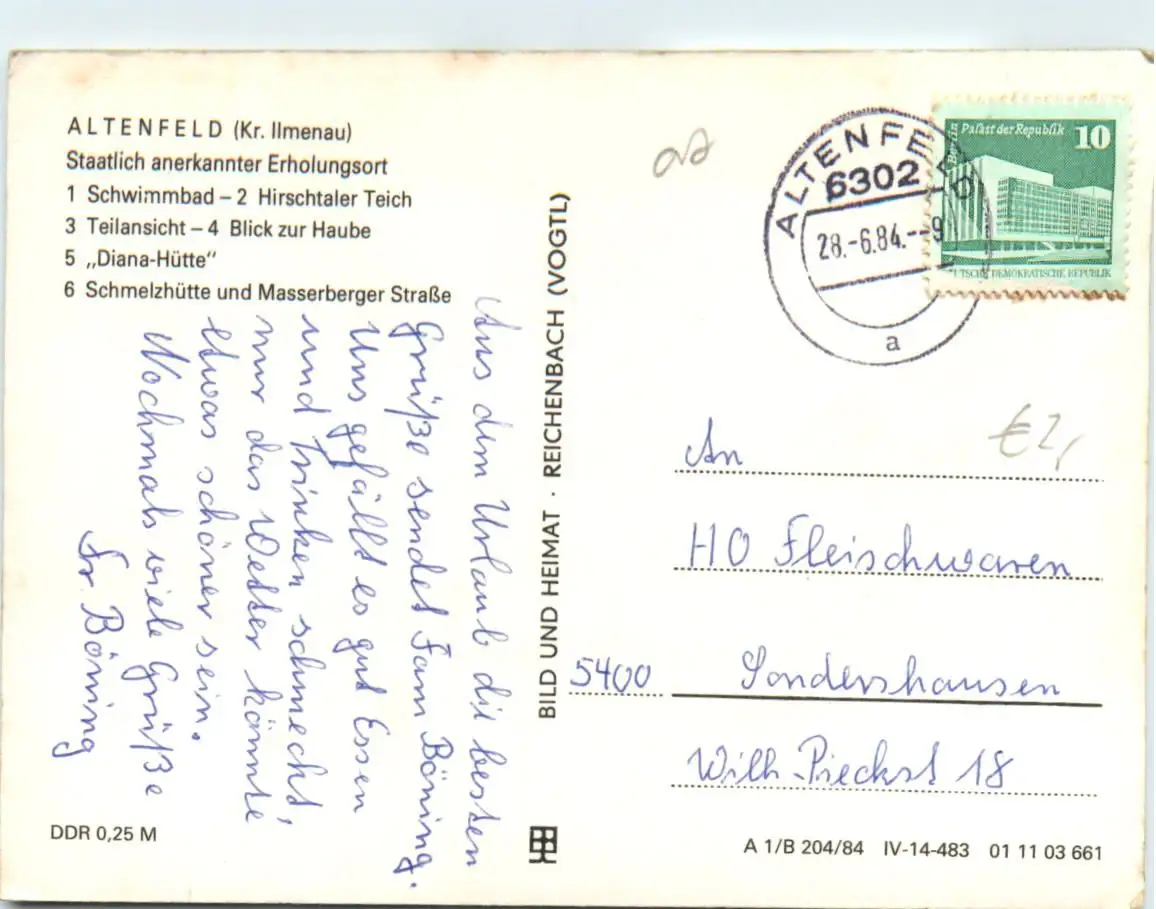 ALTENFELD (Kr. Ilmenau)
Staatlich anerkannter Erholungsort
1 Schwimmbad – 2 Hirschtaler Teich
3 Teilansicht – 4 Blick zur Haube
5 „Diana-Hütte"
6 Schmelzhütte und Masserberger Straße
Aus dem Urlaub die besten
Grüße sendet Fam Böning.
Uns gefällt es gut Essen
und Trinken schmeckt,
nur das Wetter könnte
etwas schöner sein.
Nochmals viele Grüße
Fr. Böning
DDR 0,25 M
BILD UND HEIMAT · REICHENBACH (VOGTL)
ALTENFELD
6302
28.-6.84.--9
a
Berlin
Palast der Republik
10
DEUTSCHE DEMOKRATISCHE REPUBLIK
€ 2,
An
HO Fleischwaren
5400 Sondershausen
Wilh.-Pieckst 18
A 1/B 204/84 IV-14-483 01 11 03 661